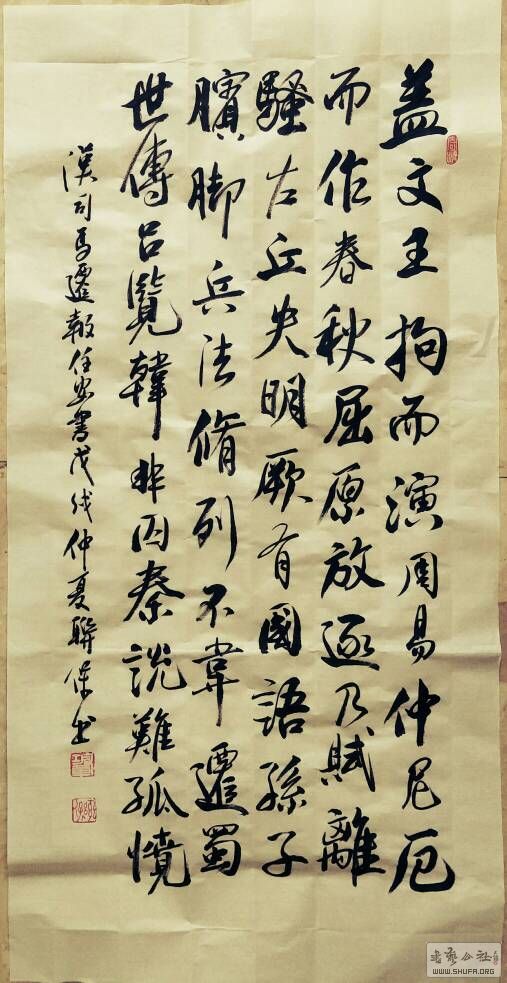 蓋文王拘而演周易仲尼厄
而作春秋屈原放逐乃賦離
騷左丘失明厥有國語孫子
臏脚兵法脩列不韋遷蜀
世傳呂覽韓非囚秦說難孤憤
漢司馬遷報任安書戊戌仲夏聯保书
WWW.SHUFA.ORG